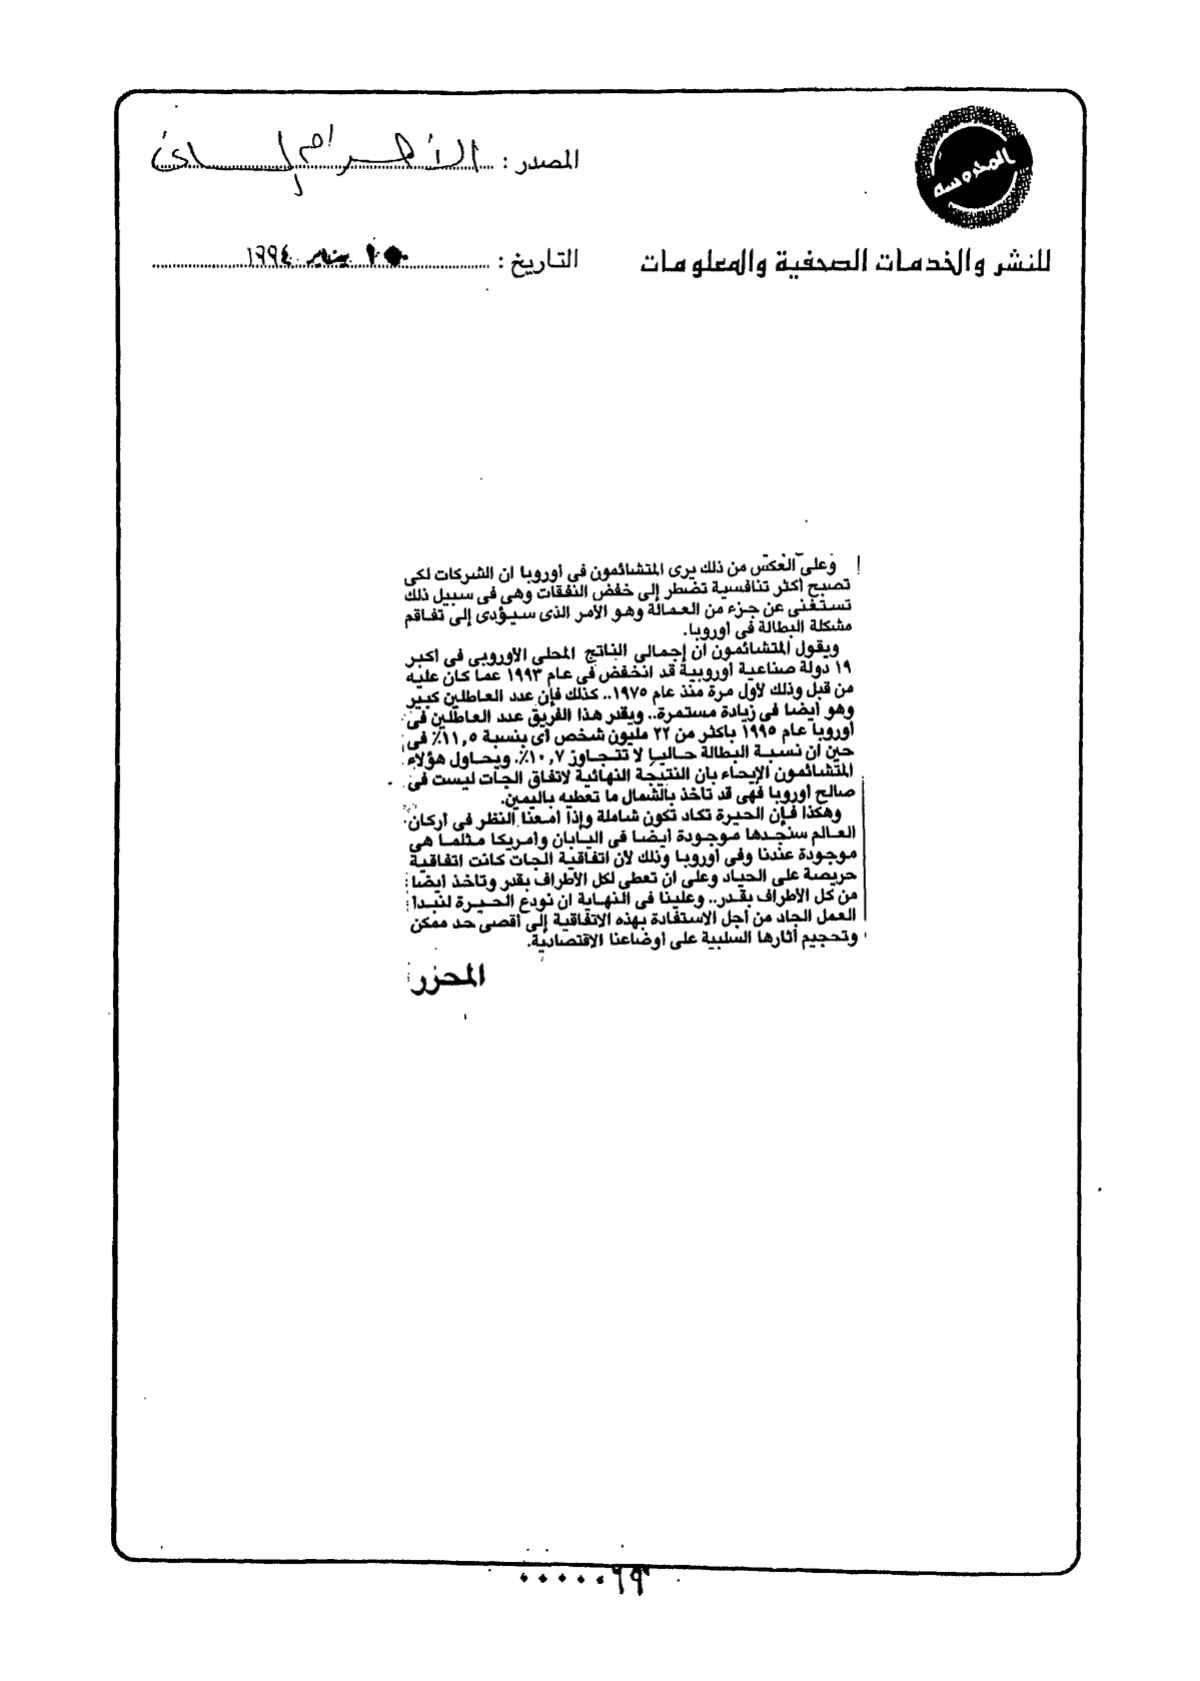 المحروسة
المصدر :
للنشر والخدمات الصحفية والمعلومات
التاريخ : يناير ١٩٩٤
وعلى العكس من ذلك يرى المتشائمون فى أوروبا ان الشركات لكى
تصبح أكثر تنافسية تضطر إلى خفض النفقات وهى فى سبيل ذلك
تستغنى عن جزء من العمالة وهو الأمر الذى سيؤدى إلى تفاقم
مشكلة البطالة فى أوروبا.
ويقول المتشائمون ان إجمالى الناتج المحلى الأوروبى فى أكبر
١٩ دولة صناعية أوروبية قد انخفض فى عام ١٩٩٣ عما كان عليه
من قبل وذلك لأول مرة منذ عام ١٩٧٥.. كذلك فإن عدد العاطلين كبير
وهو أيضا فى زيادة مستمرة.. ويقدر هذا الفريق عدد العاطلين فى
أوروبا عام ١٩٩٥ باكثر من ٢٢ مليون شخص أى بنسبة ١١,٥٪ فى
حين ان نسبة البطالة حاليا لا تتجاوز ١٠,٧٪. ويحاول هؤلاء
المتشائمون الإيحاء بان النتيجة النهائية لاتفاق الجات ليست فى
صالح أوروبا فهى قد تأخذ بالشمال ما تعطيه باليمين.
وهكذا فإن الحيرة تكاد تكون شاملة وإذا أمعنا النظر فى أركان
العالم سنجدها موجودة أيضا فى اليابان وأمريكا مثلما هى
موجودة عندنا وفى أوروبا وذلك لأن اتفاقية الجات كانت اتفاقية
حريصة على الحياد وعلى ان تعطى لكل الأطراف بقدر وتأخذ أيضا
من كل الأطراف بقدر.. وعلينا فى النهاية ان نودع الحيرة لنبدا
العمل الجاد من أجل الاستفادة بهذه الاتفاقية إلى أقصى حد ممكن
وتحجيم أثارها السلبية على أوضاعنا الاقتصادية.
المحرر